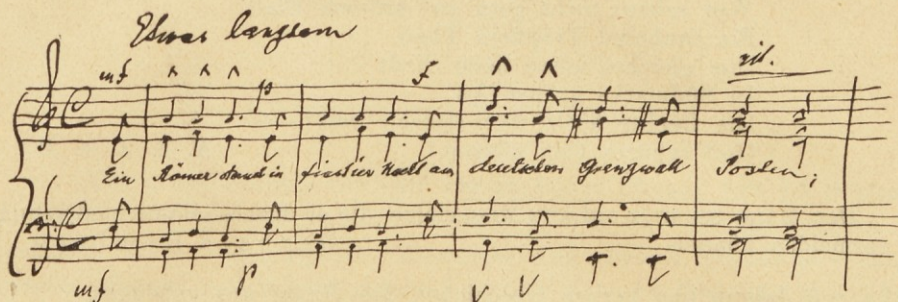 Etwas langsam
mf p f rit.
Ein Römer stand in finst'rer Nacht am deutschen Grenzwall Posten;
mf p